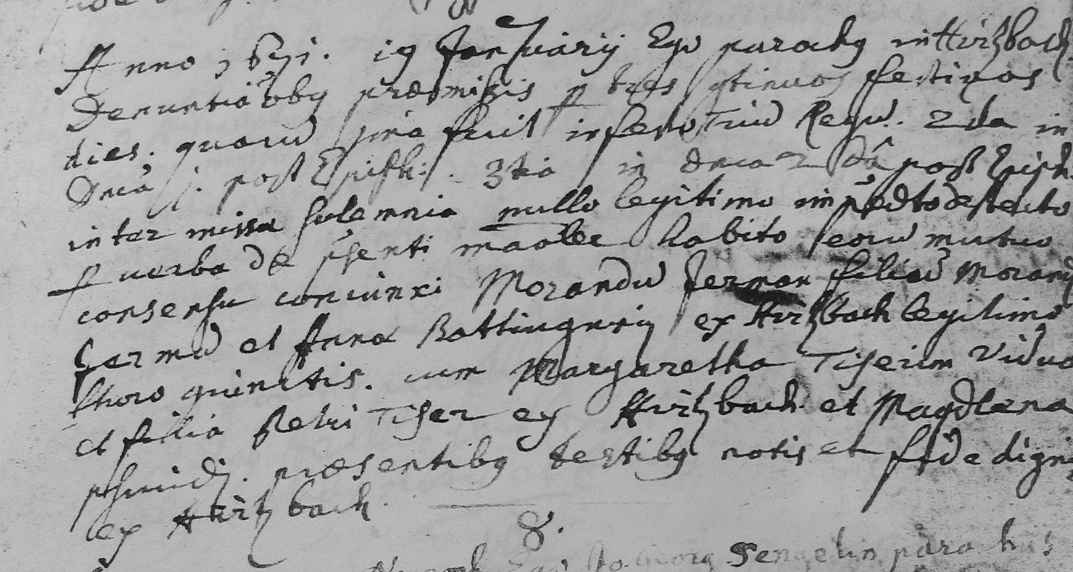 Anno 1671. 19 January Ego parochus in Hirtzbach
Denuntiaõobus præmissis p tres qtinuos festivos
dies. quarũ pria fuit in festo Triũ Regũ. 2da in
Dnica j. post Epiph. 3tia in dnica 2 dâ post Epiph.
inter missæ solemnia nullo legitimo impedto detecto
p verba de psenti habito eorũ mutuo
consensu coniunxi Morandũ Jerman filiũ Morandi
Germã et Anna ex Hirtzbach legitimo
thoro iunctis. cum Margaretha Tiserim Vidua
et filia Petri Tiser ex Hirtzbach et Magdlena
schmidi. præsentibus testibus notis et fide dignis
ex Hirtzbach.
8.
Ego Jo. Georg Sengelin parochus